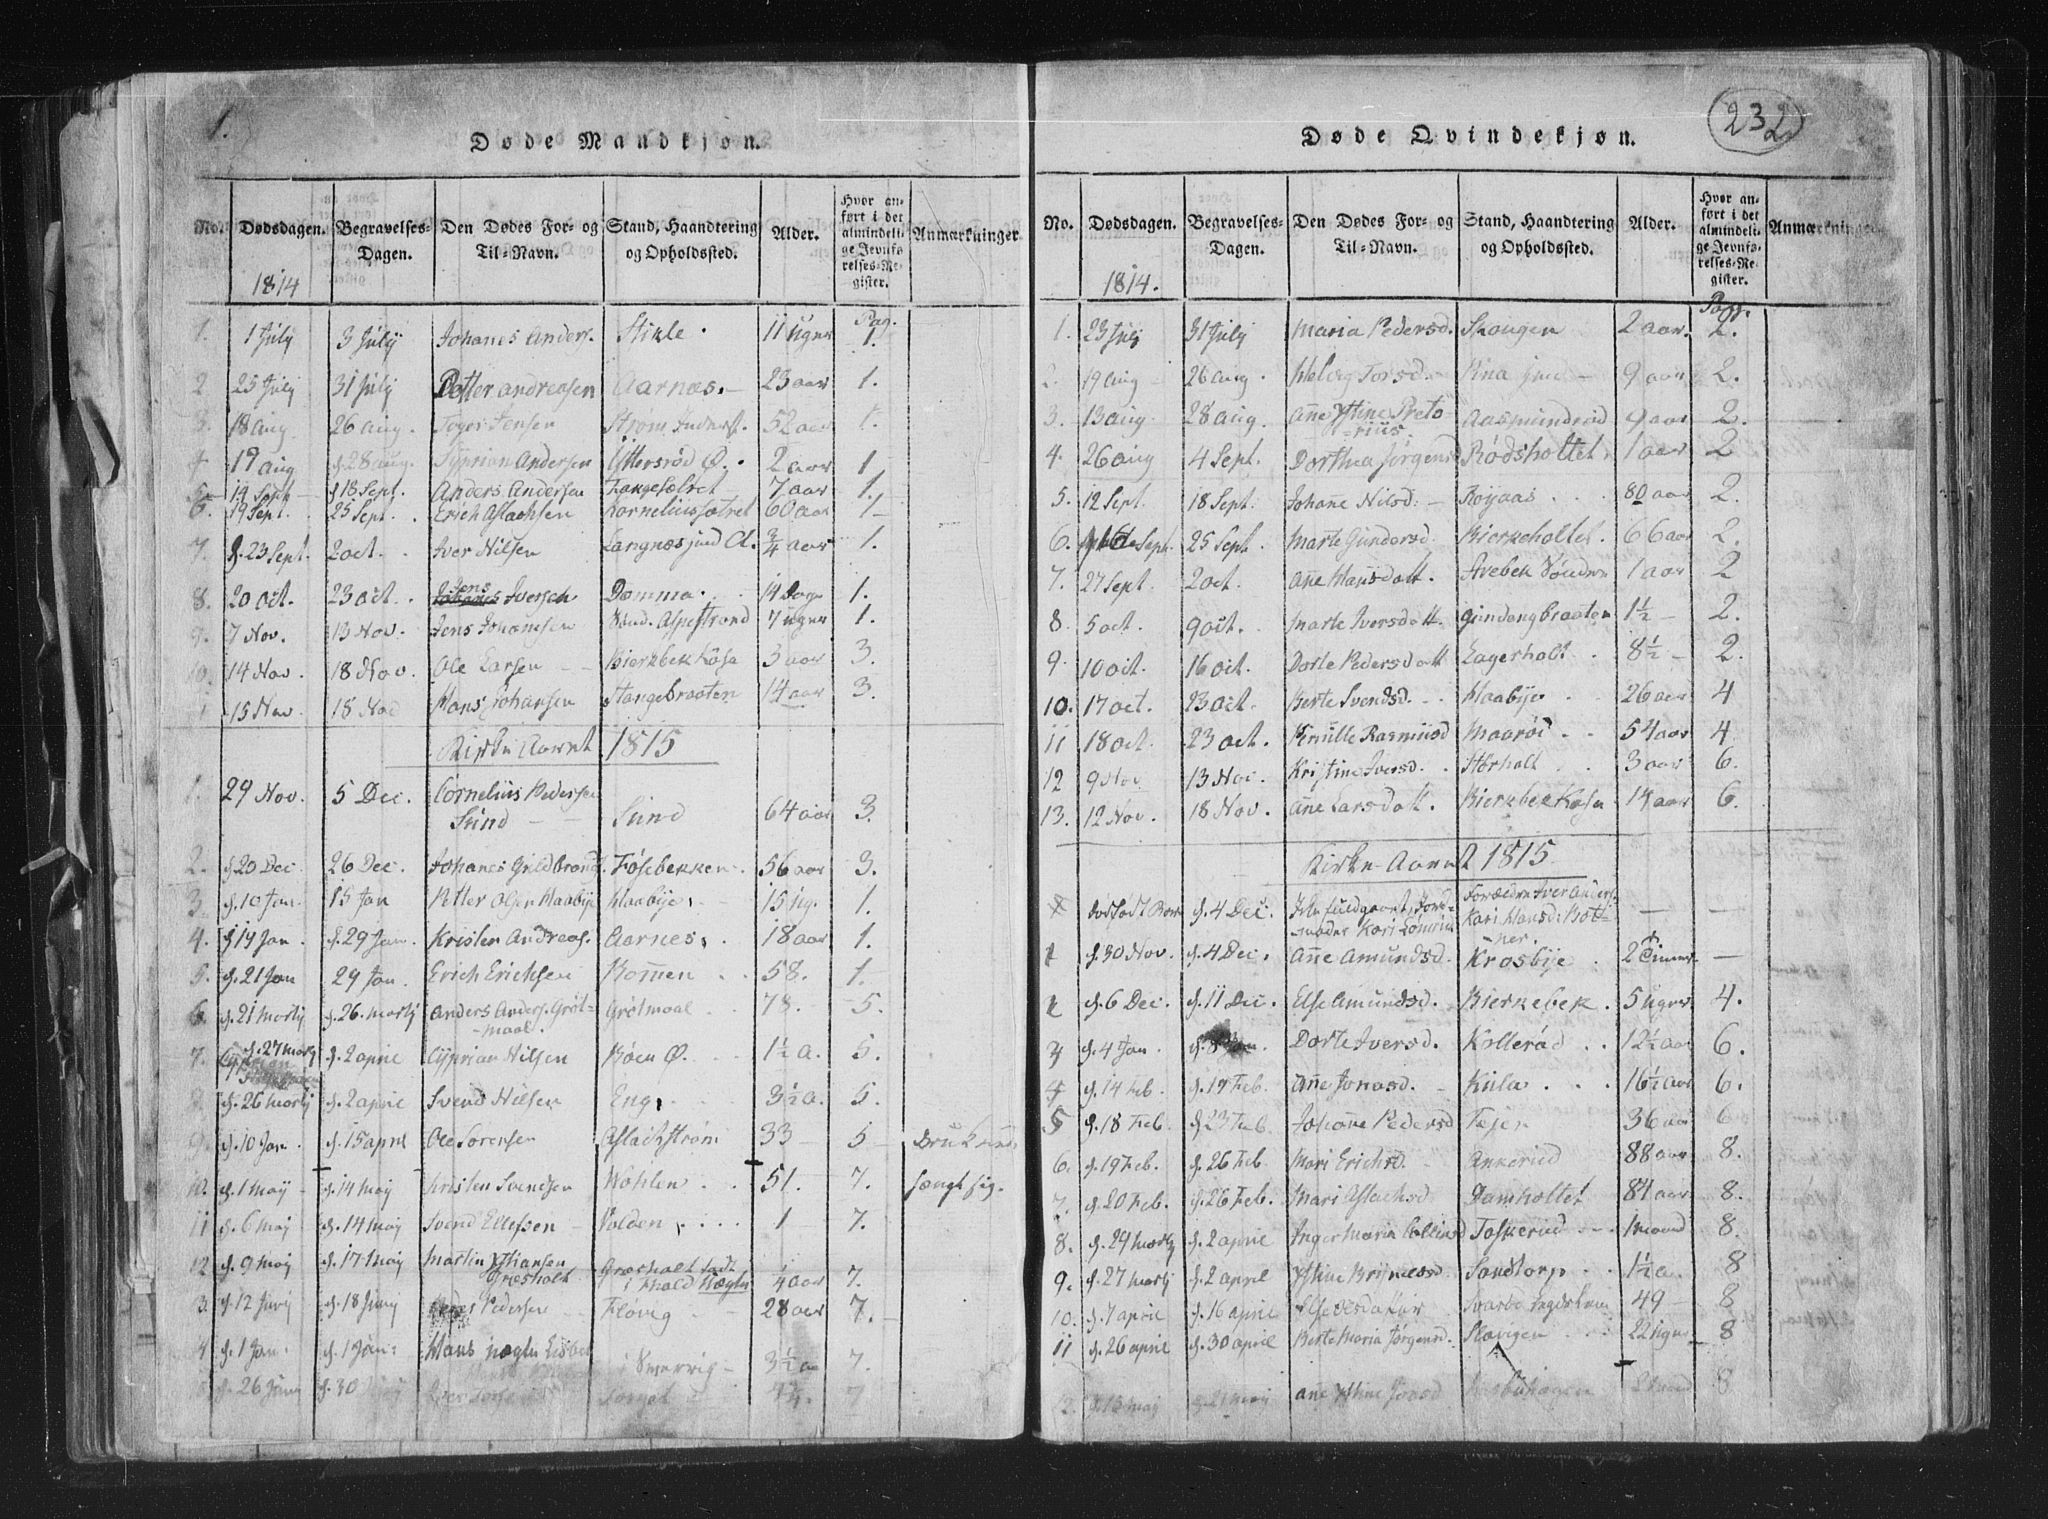 1.
Døde Mandkjøn.
No. Dødsdagen. Begravelses-Dagen. Den Dødes For- og Til-Navn. Stand, Haandtering og Opholdssted. Alder. Hvor anført i det almindelige Jevnførelses-Register. Anmærkninger
1814
Pag.
1. 1 July 3 July Johanes Anders. Stikle. 11 Uger 1.
2 25 July 31 July Petter Andreasen Aarnæs. 23 aar 1.
3. 18 Aug 26 Aug. Toger Jensen Strøm 52 aar 1.
4 19 Aug d. 28 Aug. Siprian Andersen Yttersrød Ø. 2 aar 1
5 14 Sept d. 18 Sept. Anders Andersen 7 aar 1.
6. 19 Sept. 25 Sept. Erich Aslachsen Kornelius sætret 60 aar 1
7. d. 23 Sept. 2 oct. Iver Nilsen Langnæs 3/4 aar 1.
8. 20 Oct. 23 oct. Jens Iversen Domma. 14 Dage 1.
9. 7 Nov. 13 Nov. Jens Johansen Aspestrand 7 Uger 1.
10. 14 Nov. 18 Nov. Ole Larsen Bierkbekkasa 3 aar 3.
15 Nov 18 Nov Hans Johansen Stangebraaten 14 aar 3.
Kirke Aaret 1815
1. 29 Nov. 5 Dec. Cornelius Pedersen
Sund Sund 64 aar 3.
2. d. 20 Dec 26 Dec. Johanes Guldbrands. Føsebekken 56 aar 3.
3. d. 10 Jan. 15 Jan Petter Olsen Haabye Haabye. 15 Ug. 1.
4. d. 19 Jan d. 29 Jan. Kristen Andreas. Aarnes. 18 aar 1.
5. d. 21 Jan 29 Jan. Erich Erichsen Kornen 58. 1.
6. d. 21 Martj d. 26. Martj Anders Anders. Grøt-
maal. Grøtmaal 78. 5.
7. d. 27 Martj d. 2 aprile Cyprian Nilsen Røen Ø. 1½ a. 5.
8. d. 26 Martj d. 2 aprile Svend Nilsen Eng. 3½ a. 5.
9. d. 10 Jan. d. 15 april Ole Sørensen Aslachstrøm 33 5
10. d. 1 May d. 14 May Kristen Svendsen Wohlen 51. 7. hængt sig.
11 d. 6 Maj d. 14 Maj Svend Ellefsen Volden. 1 7.
12 d. 9 Maj d. 17 Maj Martin Xstiansen
Græsholt Græsholt født
i Hald 1/4 aar 7.
3. d. 12 Junj d. 18 Junj Pedersen Floveg 28 aar 7.
4 d. 1 Jan. d. 1 Jan: Hans Smervig 3½ aa 7.
d. 26 Junj d. 30 7
232
Døde Qvindekjøn.
No. Dødsdagen. Begravelses-Dagen. Den Dødes For- og Til-Navn. Stand, Haandtering og Opholdssted. Alder. Hvor anført i det almindelige Jevnførelses-Register. Anmærkninger
1814.
Pag.
1. 23 July 31 July Maria Pedersd. Skougen 2 aar. 2.
2. 19 Aug 26 Aug. Helvig Torsd. 9 aar 2.
3. 13 aug. 28 aug. Añe Xstine Preto-
rius Aasmundrød 9 aar 2.
4. 26 aug 4 Sept. Dorthea Jørgensd Rødsholtet 1 aar 2
5. 12 Sept. 18 Sept. Johañe Nilsd. Røyaas 80 aar 2.
6. 16 Sept. 25 Sept. Marte Gundersd. Bierkeholtet. 66 aar 2.
7. 27 Sept. 2 oct. Añe Hansdatt. Arebek Søndre 1 aar 2
8. 5 oct. 9 oct. Marte Iversdatt. 1½ 2.
9. 10 oct. 16 oct. Dorte Pedersdatt Lagerholt 8½ 2.
10. 17 oct. 23 oct. Berte Svendsd. Haabye 26 aar 4
11 18 oct. 23 oct. Pernille Rasmusd Maarød 54 aar 4.
12 9 Nov 13 Nov. Kristine Iversd. Størholt 3 aar 6.
13. 12 Nov. 18 Nov. Añe Larsdatt. Bierkbekkasen 14 aar 6.
Kirke-Aaret 1815.
d. 4 Dec. Forældre Iver Anders.
Kari Hansd. Bott-
ner.
1 d. 30 Nov. d. 4 Dec. Añe Amundsd. Krosbye 2 Timer
2 d. 6 Dec. d. 11 Dec. Else Amundsd. Bierkebek. 5 Uger 4.
3 d. 4 Jan. Dorte Iversd. Kollerød 12½ aar 6.
4 d. 14 Feb. d. 19 Feb. Añe Jonasd. Kula 16½ aar 6.
5 d. 18 Feb. d. 23 Feb. Johañe Pedersd Tejen 36 aar 6
6. d. 19 Feb. d. 26 Feb. Mari Erichsd. Ankerud 88 aar 8.
7. d. 20 Feb. d. 26 Feb. Mari Aslachsd Damholtet 84 aar 8.
8. d. 24 Martj d. 2 aprile Inger Maria Toskerud 1 Maaned 8.
9. d. 27 Martj d. 2 april Xstine Brynnesd Sandtorp 1½ a. 8
10. d. 7 aprile d. 16 aprile 49 8
11 d. 26 aprile d. 30 april Berte Maria Jørgensd. Slavigen 22 Uger 8
12. d. 13 Maj d. 21 Maj Añe Xstine 8